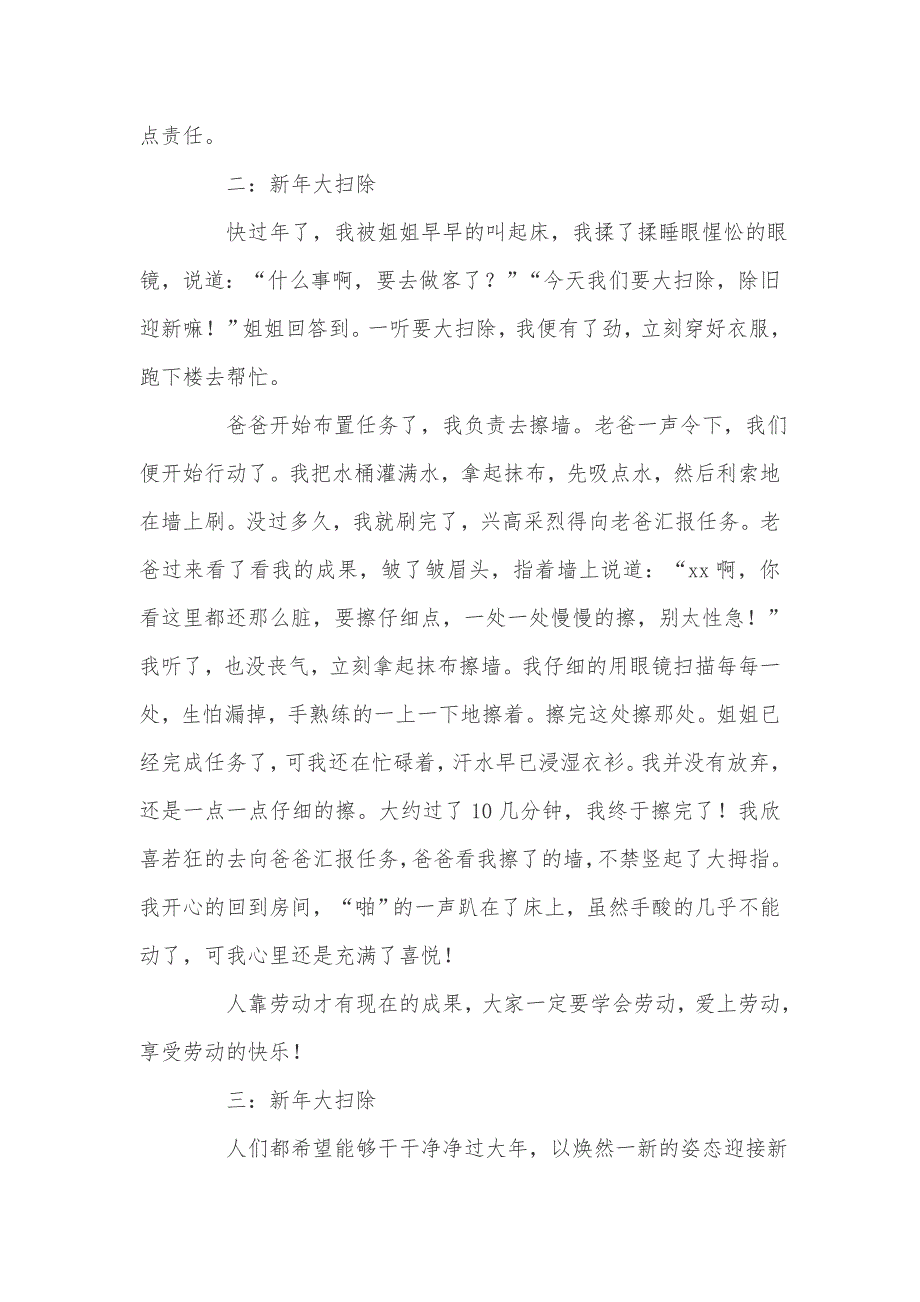 点责任。
二：新年大扫除
快过年了，我被姐姐早早的叫起床，我揉了揉睡眼惺忪的眼
镜，说道：“什么事啊，要去做客了？”“今天我们要大扫除，除旧
迎新嘛！”姐姐回答到。一听要大扫除，我便有了劲，立刻穿好衣服，
跑下楼去帮忙。
爸爸开始布置任务了，我负责去擦墙。老爸一声令下，我们
便开始行动了。我把水桶灌满水，拿起抹布，先吸点水，然后利索地
在墙上刷。没过多久，我就刷完了，兴高采烈得向老爸汇报任务。老
爸过来看了看我的成果，皱了皱眉头，指着墙上说道：“xx 啊，你
看这里都还那么脏，要擦仔细点，一处一处慢慢的擦，别太性急！”
我听了，也没丧气，立刻拿起抹布擦墙。我仔细的用眼镜扫描每每一
处，生怕漏掉，手熟练的一上一下地擦着。擦完这处擦那处。姐姐已
经完成任务了，可我还在忙碌着，汗水早已浸湿衣衫。我并没有放弃，
还是一点一点仔细的擦。大约过了 10 几分钟，我终于擦完了！我欣
喜若狂的去向爸爸汇报任务，爸爸看我擦了的墙，不禁竖起了大拇指。
我开心的回到房间，“啪”的一声趴在了床上，虽然手酸的几乎不能
动了，可我心里还是充满了喜悦！
人靠劳动才有现在的成果，大家一定要学会劳动，爱上劳动，
享受劳动的快乐！
三：新年大扫除
人们都希望能够干干净净过大年，以焕然一新的姿态迎接新